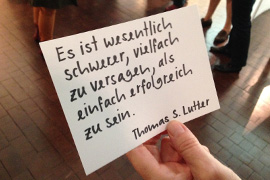 Es ist wesentlich
schwerer, vielfach
zu versagen, als
einfach erfolgreich
zu sein.
Thomas S. Lutter